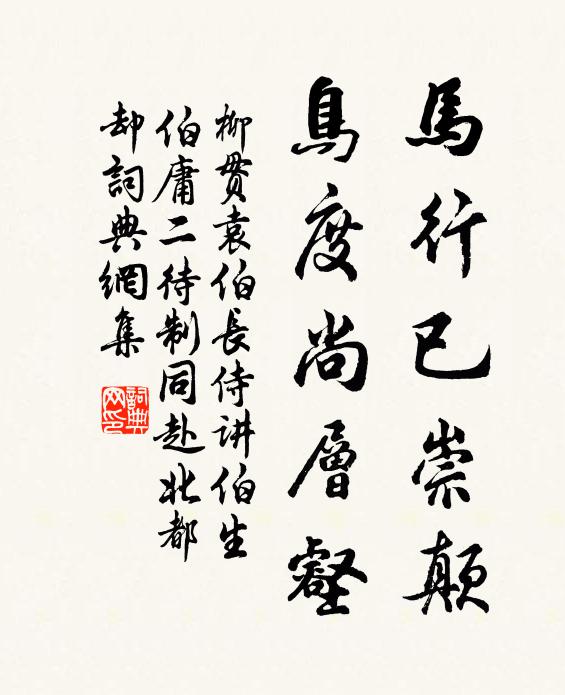 馬行已崇顛
鳥度尚層壑
柳贯袁伯長侍讲伯生
伯庸二待制同赴北都
却詞典網集
詞典网印